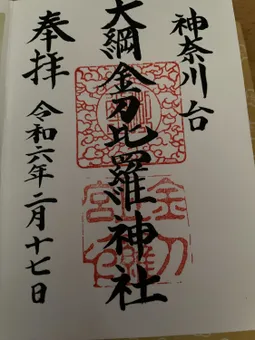 神奈川台
大綱金刀比羅神社
奉拝
令和六年二月十七日